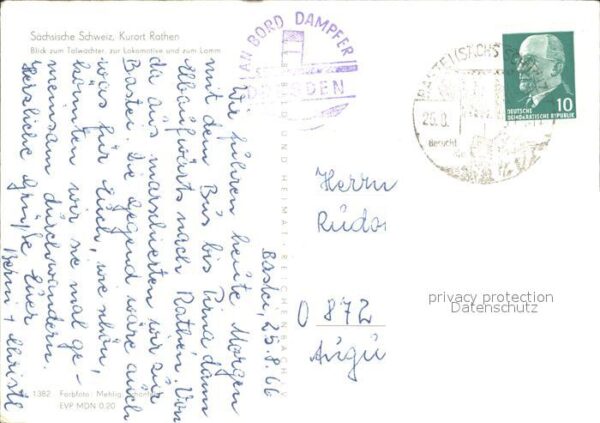 Sächsische Schweiz, Kurort Rathen
Blick zum Talwächter, zur Lokomotive und zum Lamm
AN BORD DAMPFER
DRESDEN
BASTEI (SÄCHS.
25.8.
Besucht
DEUTSCHE
DEMOKRATISCHE REPUBLIK
10
BILD UND HEIMAT REICHENBACH V
Bastei, 25.8.66
Wir fuhren heute Morgen
mit dem Bus bis Pirna dann
elbaufwärts nach Rathen. Von
da aus marschierten wir zur
Bastei. Die Gegend wäre auch
was für Euch, wie schön,
könnten wir sie mal ge-
meinsam durchwandern.
Herzliche Grüße Euer
Berni + Christl
Herrn
Rudo
O 872
Augu
1382 Farbfoto: Mehlig,
EVP MDN 0,20
privacy protection
Datenschutz